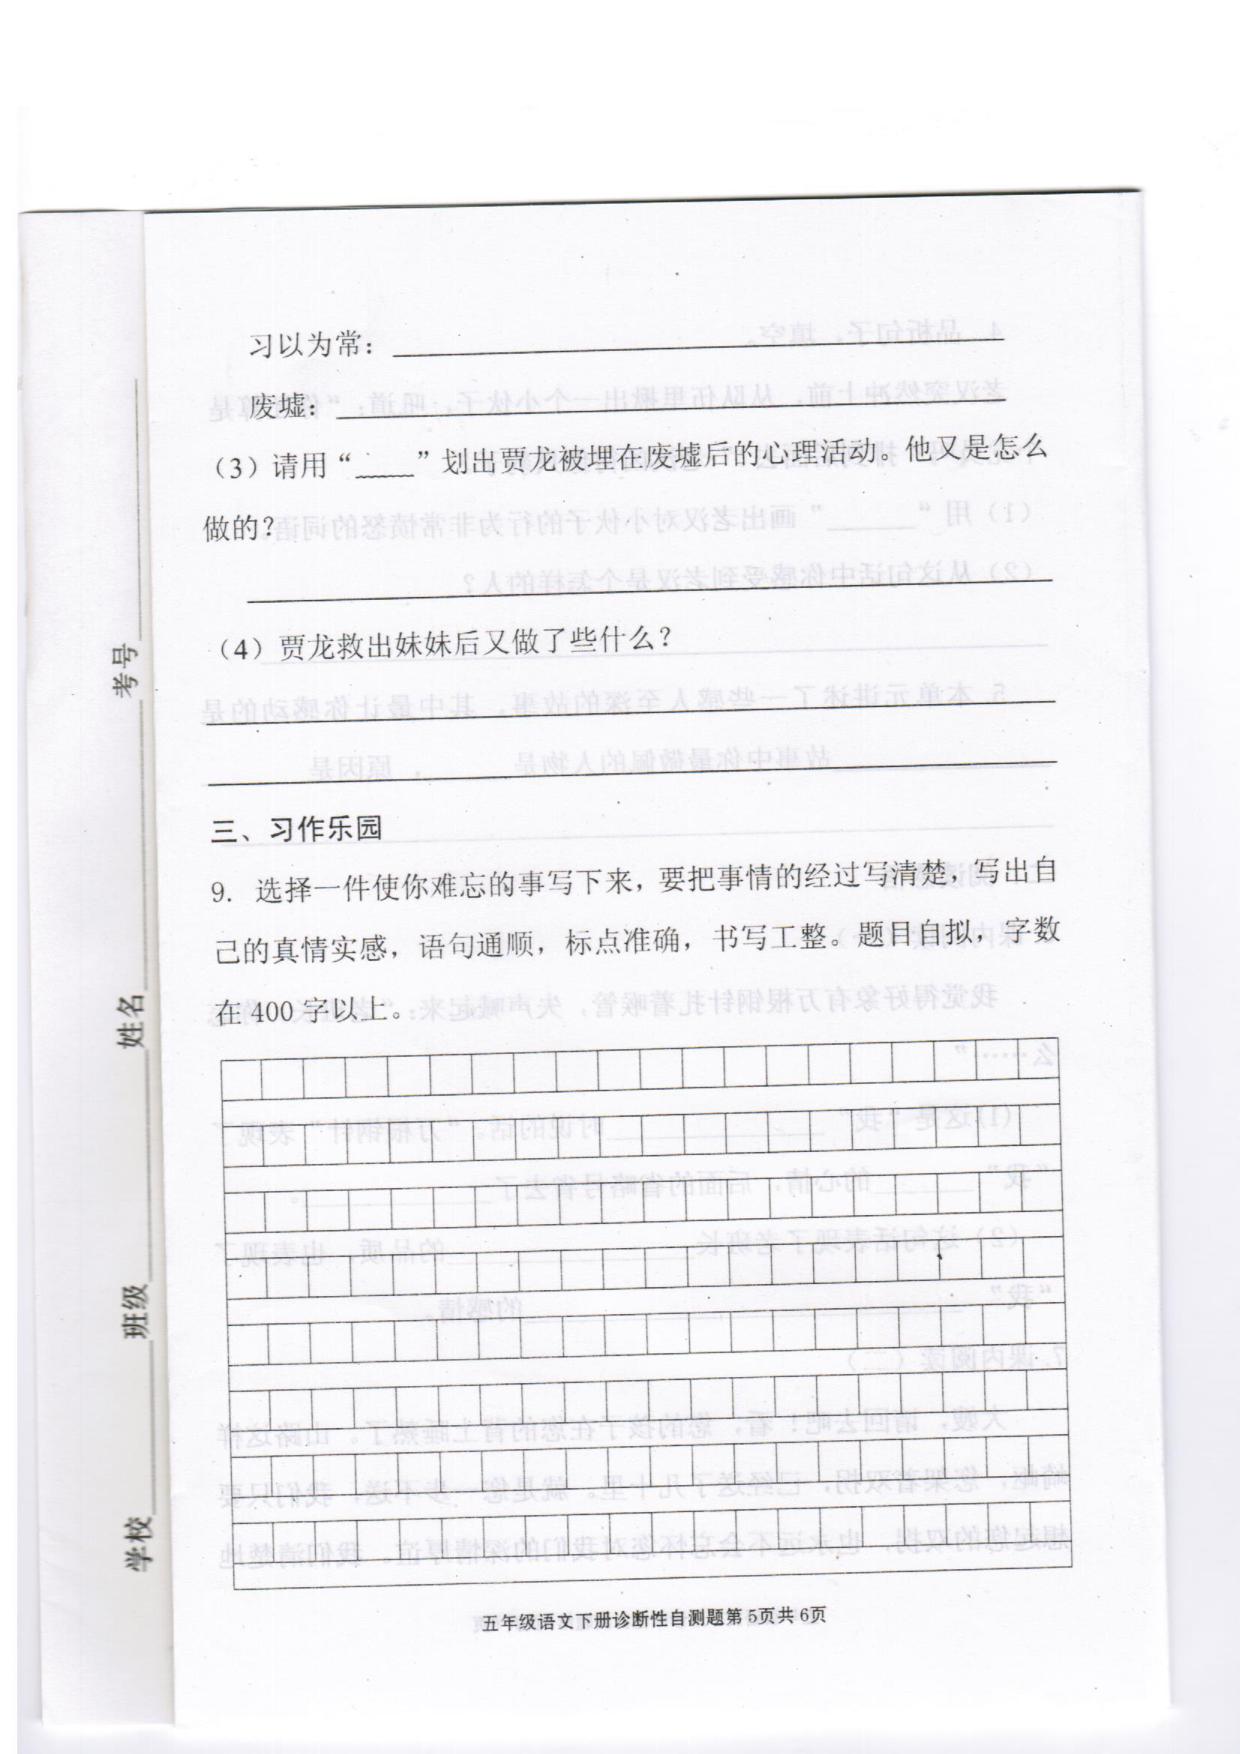 习以为常：
废墟：
（3）请用“____”划出贾龙被埋在废墟后的心理活动。他又是怎么
做的？
（4）贾龙救出妹妹后又做了些什么？
三、习作乐园
9. 选择一件使你难忘的事写下来，要把事情的经过写清楚，写出自
己的真情实感，语句通顺，标点准确，书写工整。题目自拟，字数
在 400 字以上。
五年级语文下册诊断性自测题第 5页共 6页
学校 班级 姓名 考号